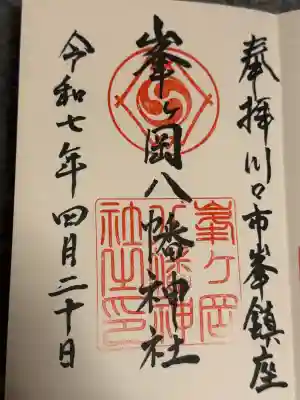 奉拝川口市峯鎮座
峯ヶ岡八幡神社
峯ヶ岡
八幡神
社之印
令和七年四月二十日